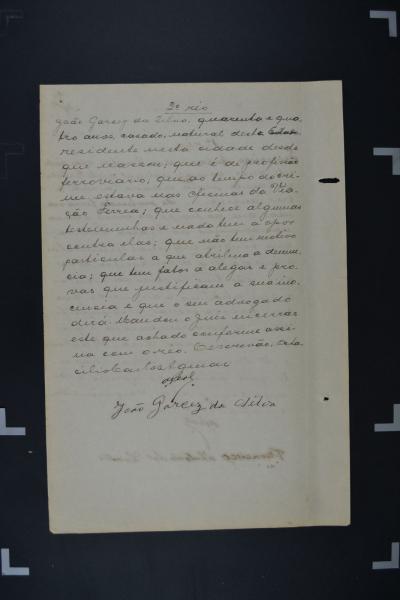 2º réo
João Garcez da Silva, quarenta e qua
tro anos, casado, natural deste Estado
residente nesta cidade desde
que nasceu; que é de profissão
ferroviario; que ao tempo do cri
me estava nas oficinas da Via
ção Ferrea; que conhece algumas
testemunhas e nada tem a opor
contra elas; que não tem motivo
particular a que atribua a denun
cia; que tem fatos a alegar e pro
vas que justificam a sua ino
cencia e que o seu advogado
dirá. Mandou o Juiz encerrar
este que achado conforme assi
na com o réo. O escrevão,
João Garcez da Silva